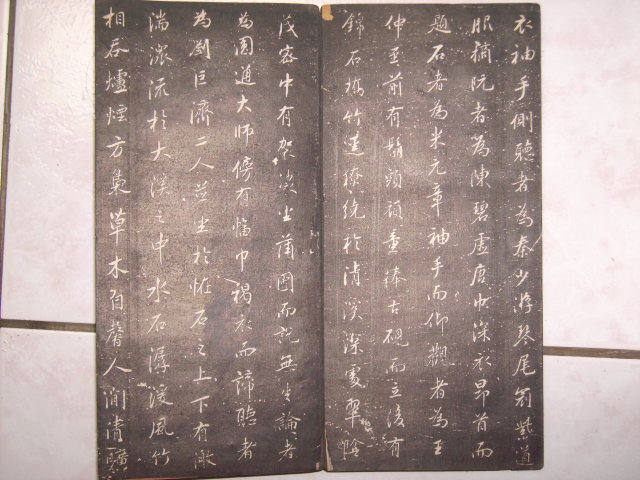 衣袖手側聽者為秦少游琴尾冠紫道
服摘阮者為陳碧虛唐巾深衣昂首而
題石者為米元章袖手而仰觀者為王
仲至前有鬅頭頑童捧古硯而立後有
錦石橋竹逕繚繞於清溪深處翠陰
茂密中有袈裟坐蒲團而說無生論者
為圓通大師傍有幅巾褐衣而諦聽者
為劉巨濟二人並坐於怪石之上下有激
湍潨流於大溪之中水石潺湲風竹
相吞爐煙方裊草木自馨人間清曠